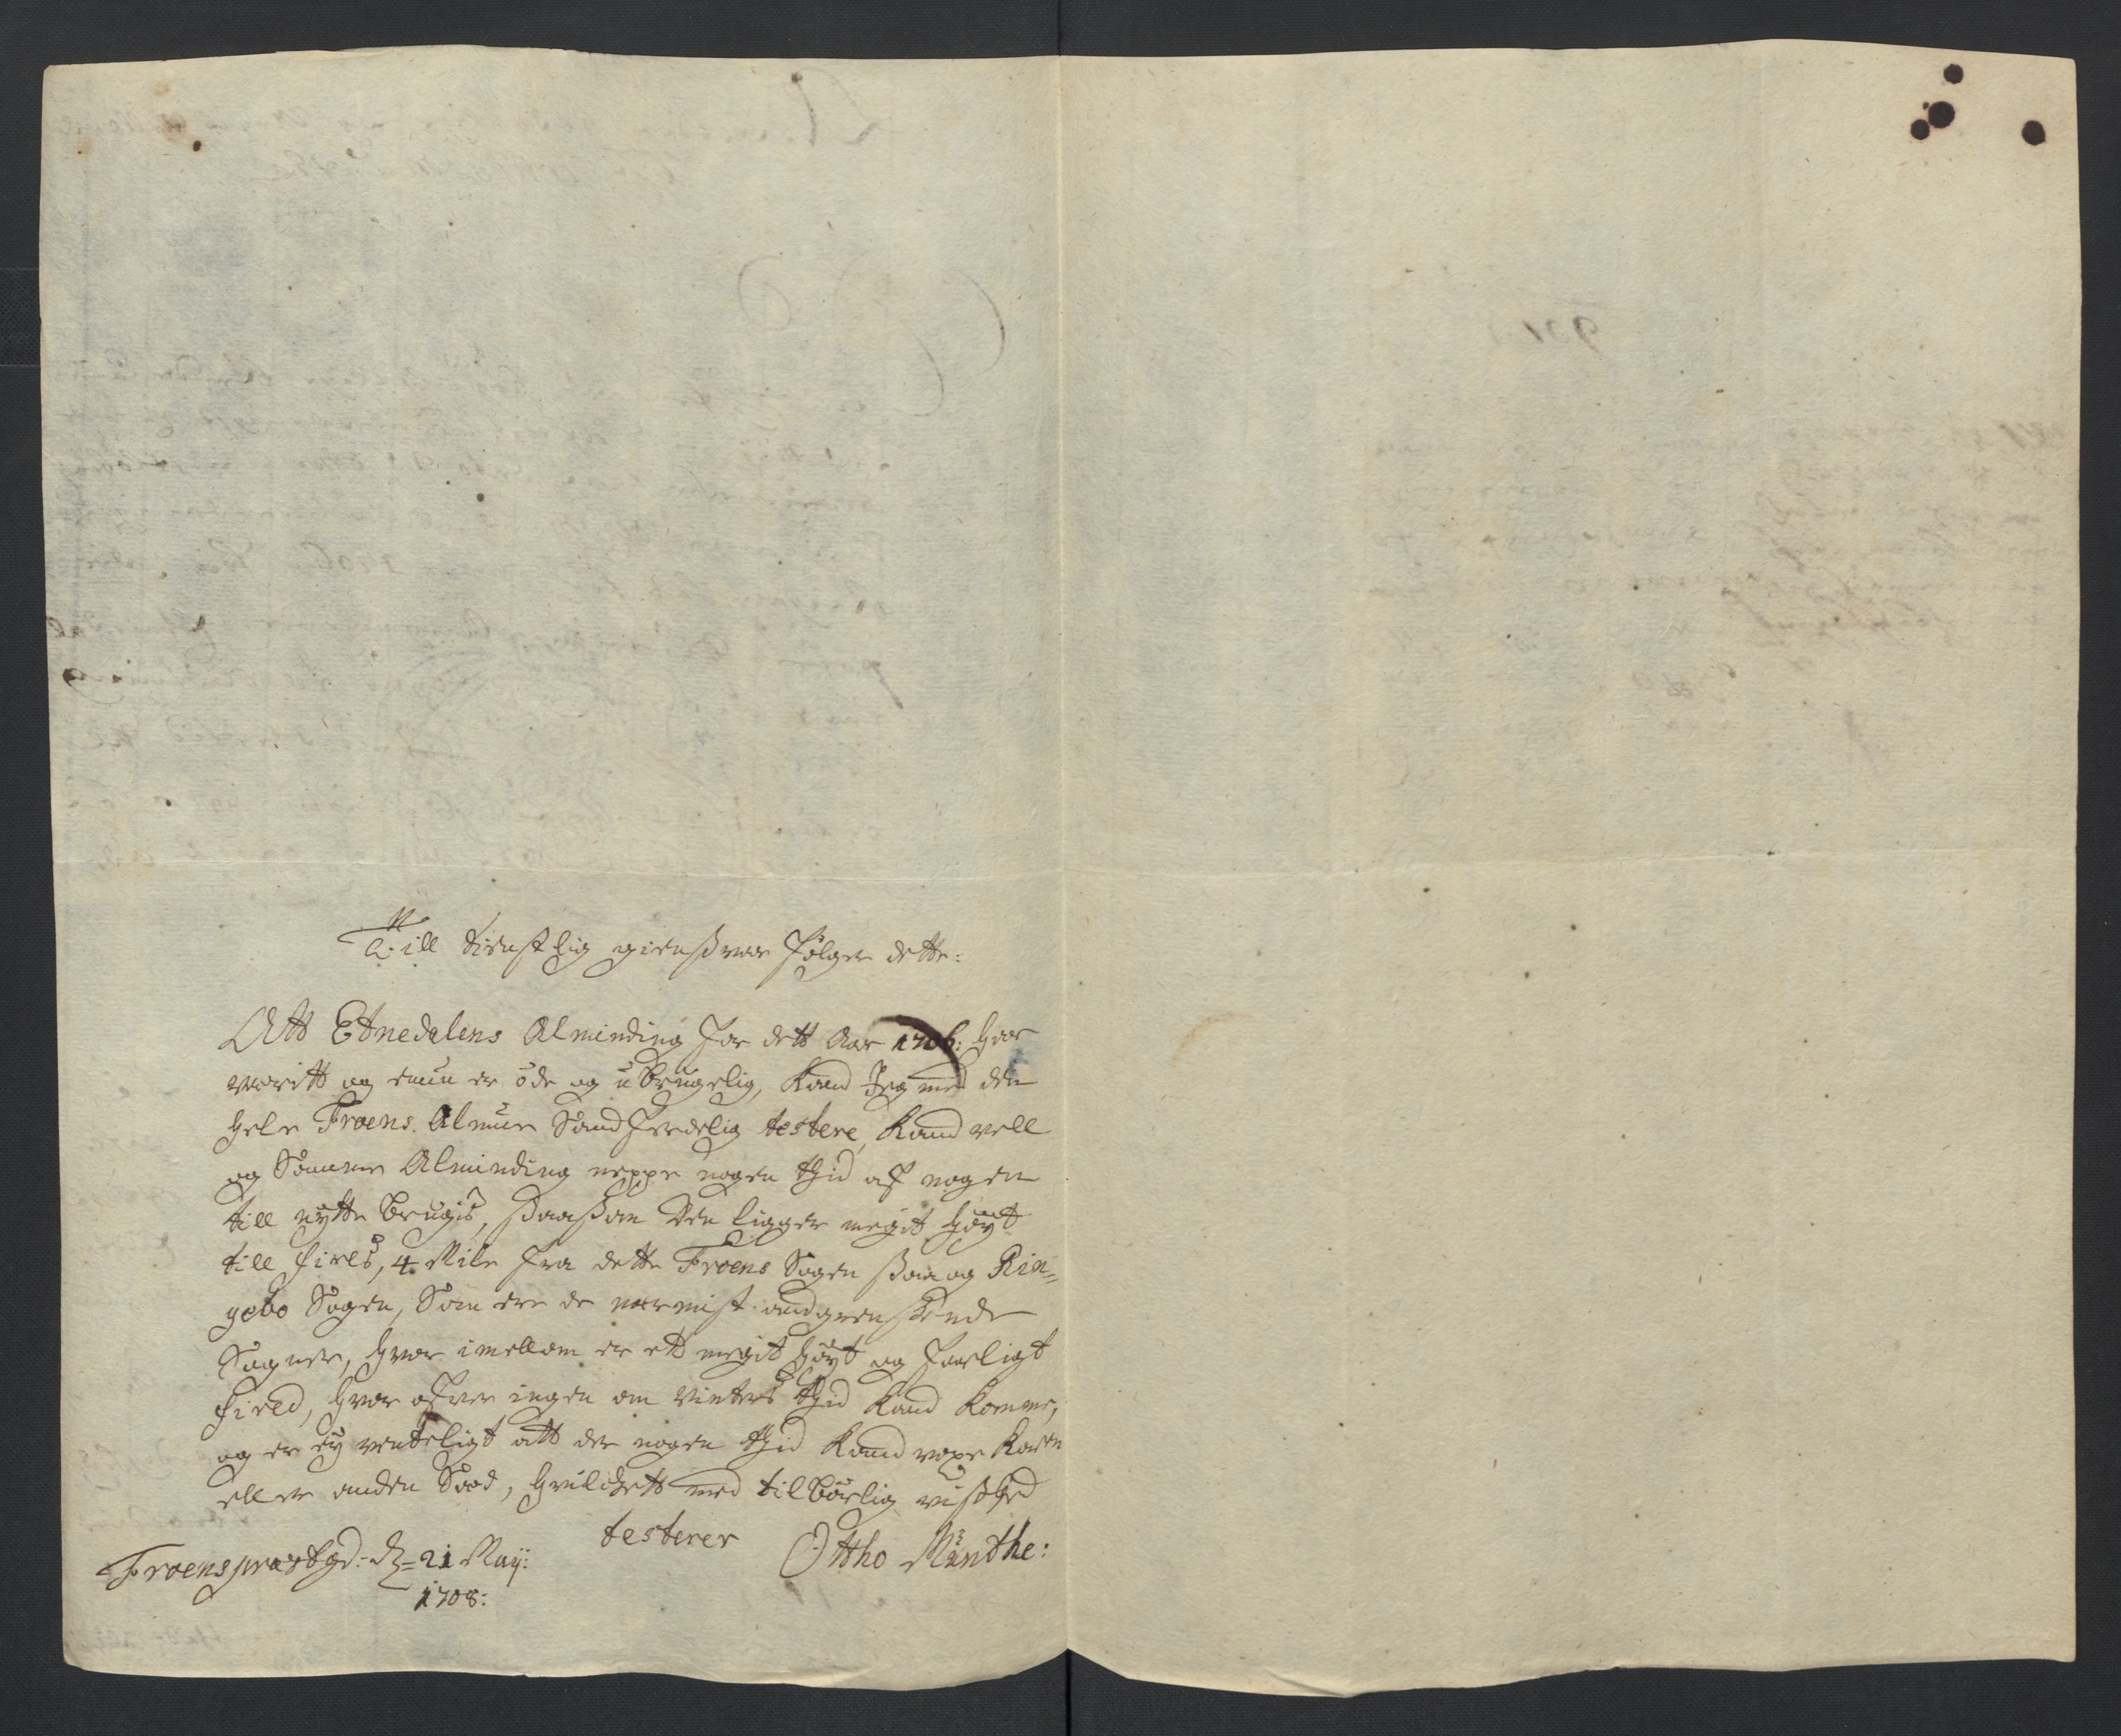 Till tienstlig giensvar følger dette:
Att Etnedalens Alminding for dett Aar 1706: haar
veritt og ennu er øde og ubrugelig, kand Jeg med den
hele Froens Almue Sandferdelig testere, kand vell
og Samme Alminding neppe nogen thid af nogen
till nytte brugis, saasom den ligger megit høyt
till fields, 4 Mile fra dette Froens Sogen saa og Rin-
gebo Sogen, Som ere de nermist andgrensende
Sogner, hvor imellom er ett megit høyt og farligt
field, hvor ofver ingen om vinters thid kand komme,
og er ey venteligt att der nogen thid kand voxe Korn
eller anden Sæd, hvilchett med tilbørlig visshed
testerer Ottho Münthe:
Froens præstgd: d. 21 Maij:
1708: